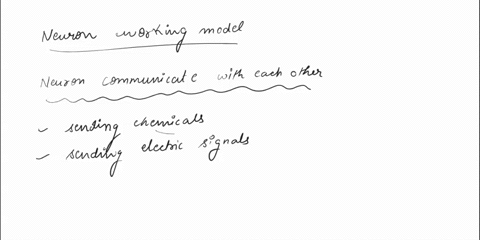 Neuron working model
Neuron communicate with each other
sending chemicals
sending electric signals